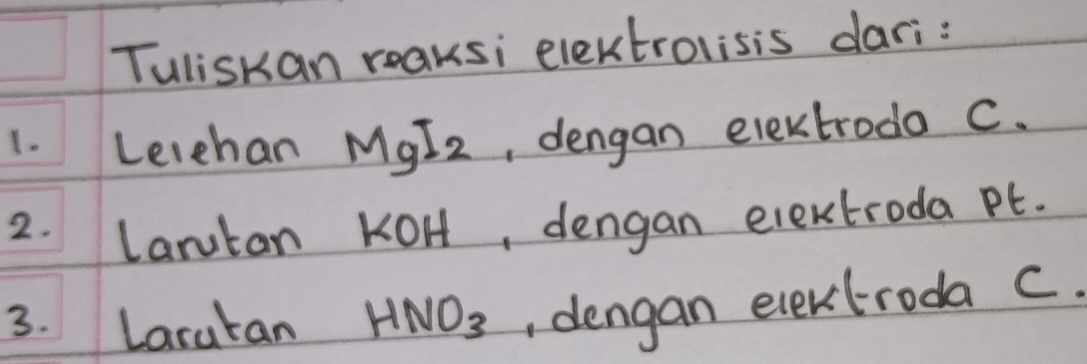 Tuliskan reaksi elektrolisis dari :
1. Lelehan MgI2, dengan elektroda C.
2. Larutan KOH, dengan elektroda Pt.
3. Larutan HNO3, dengan elektroda C.